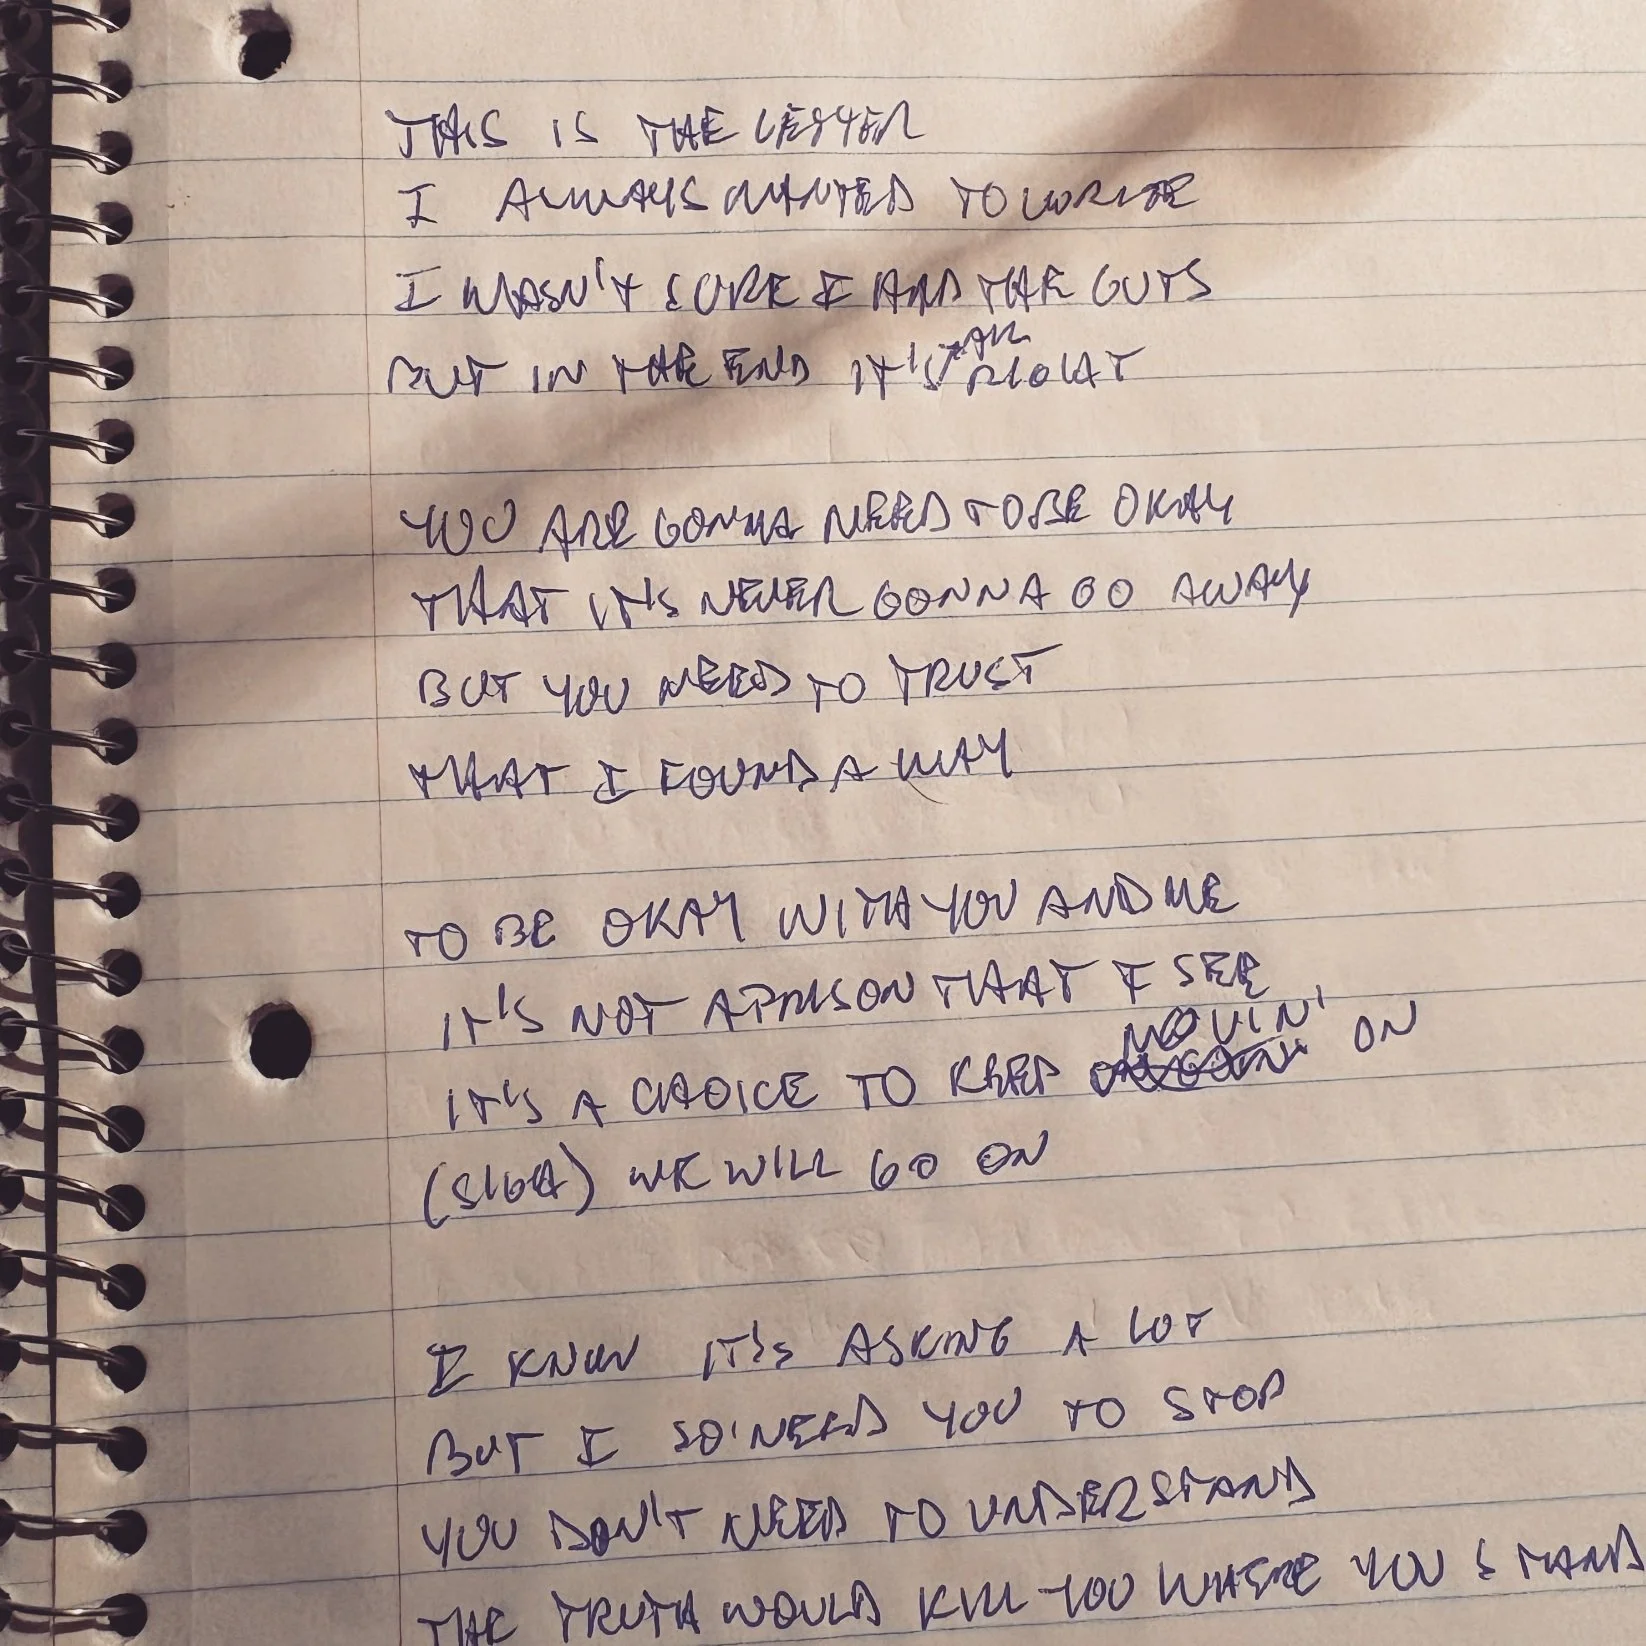 THIS IS THE LETTER
I ALWAYS WANTED TO WRITE
I WASN'T SURE I HAD THE GUTS
BUT IN THE END IT'S ALL RIGHT
YOU ARE GONNA NEED TO BE OKAY
THAT IT'S NEVER GONNA GO AWAY
BUT YOU NEED TO TRUST
THAT I FOUND A WAY
TO BE OKAY WITH YOU AND ME
IT'S NOT A PRISON THAT I SEE
IT'S A CHOICE TO KEEP MOVIN' ON
(SIGH) WE WILL GO ON
I KNOW IT'S ASKING A LOT
BUT I SO NEED YOU TO STOP
YOU DON'T NEED TO UNDERSTAND
THE TRUTH WOULD KILL YOU WHERE YOU STAND